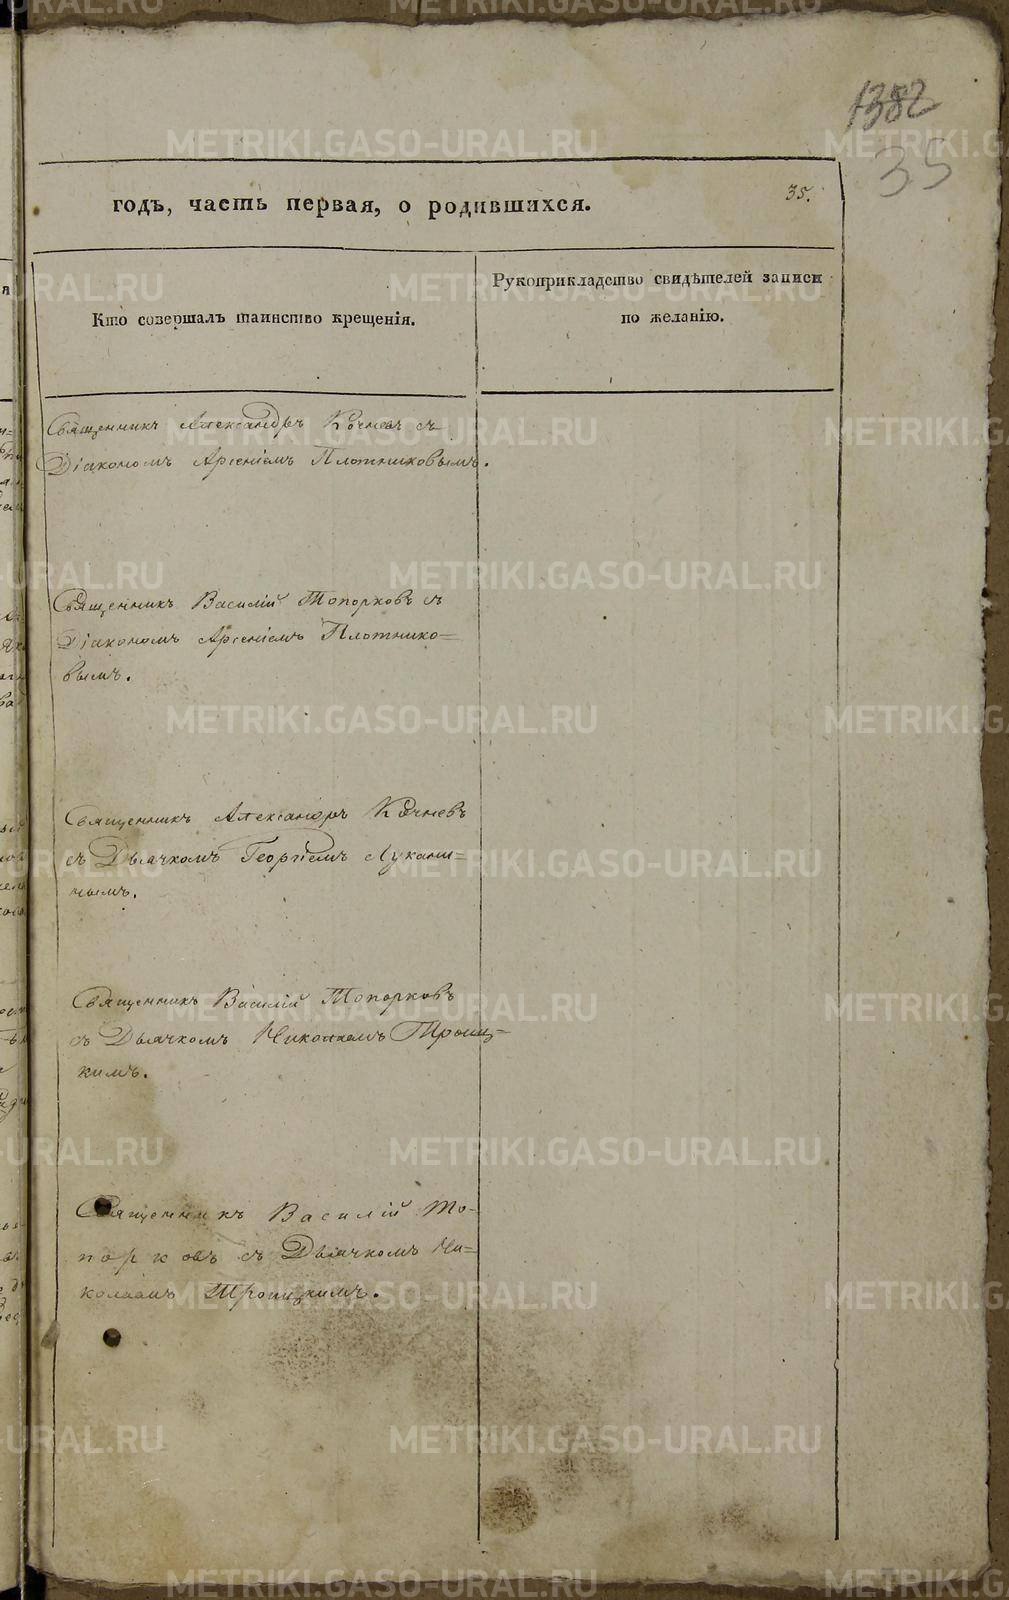 1382
35
годъ, часть первая, о родившихся. 35.
Кто совершалъ таинство крещенія.
Рукоприкладство свидѣтелей записи
по желанію.
Священникъ Александръ Кочневъ съ
Діакономъ Арсеніемъ Плотниковымъ.
Священникъ Василій Топорковъ съ
Діакономъ Арсеніемъ Плотнико=
вымъ.
Священникъ Александръ Кочневъ
съ Дьячкомъ Георгіемъ Лукани=
нымъ.
Священникъ Василій Топорковъ
съ Дьячкомъ Николаемъ Троиц=
кимъ.
Священникъ Василій То=
порковъ съ Дьячкомъ Ни=
колаемъ Троицкимъ.
METRIKI.GASO-URAL.RU